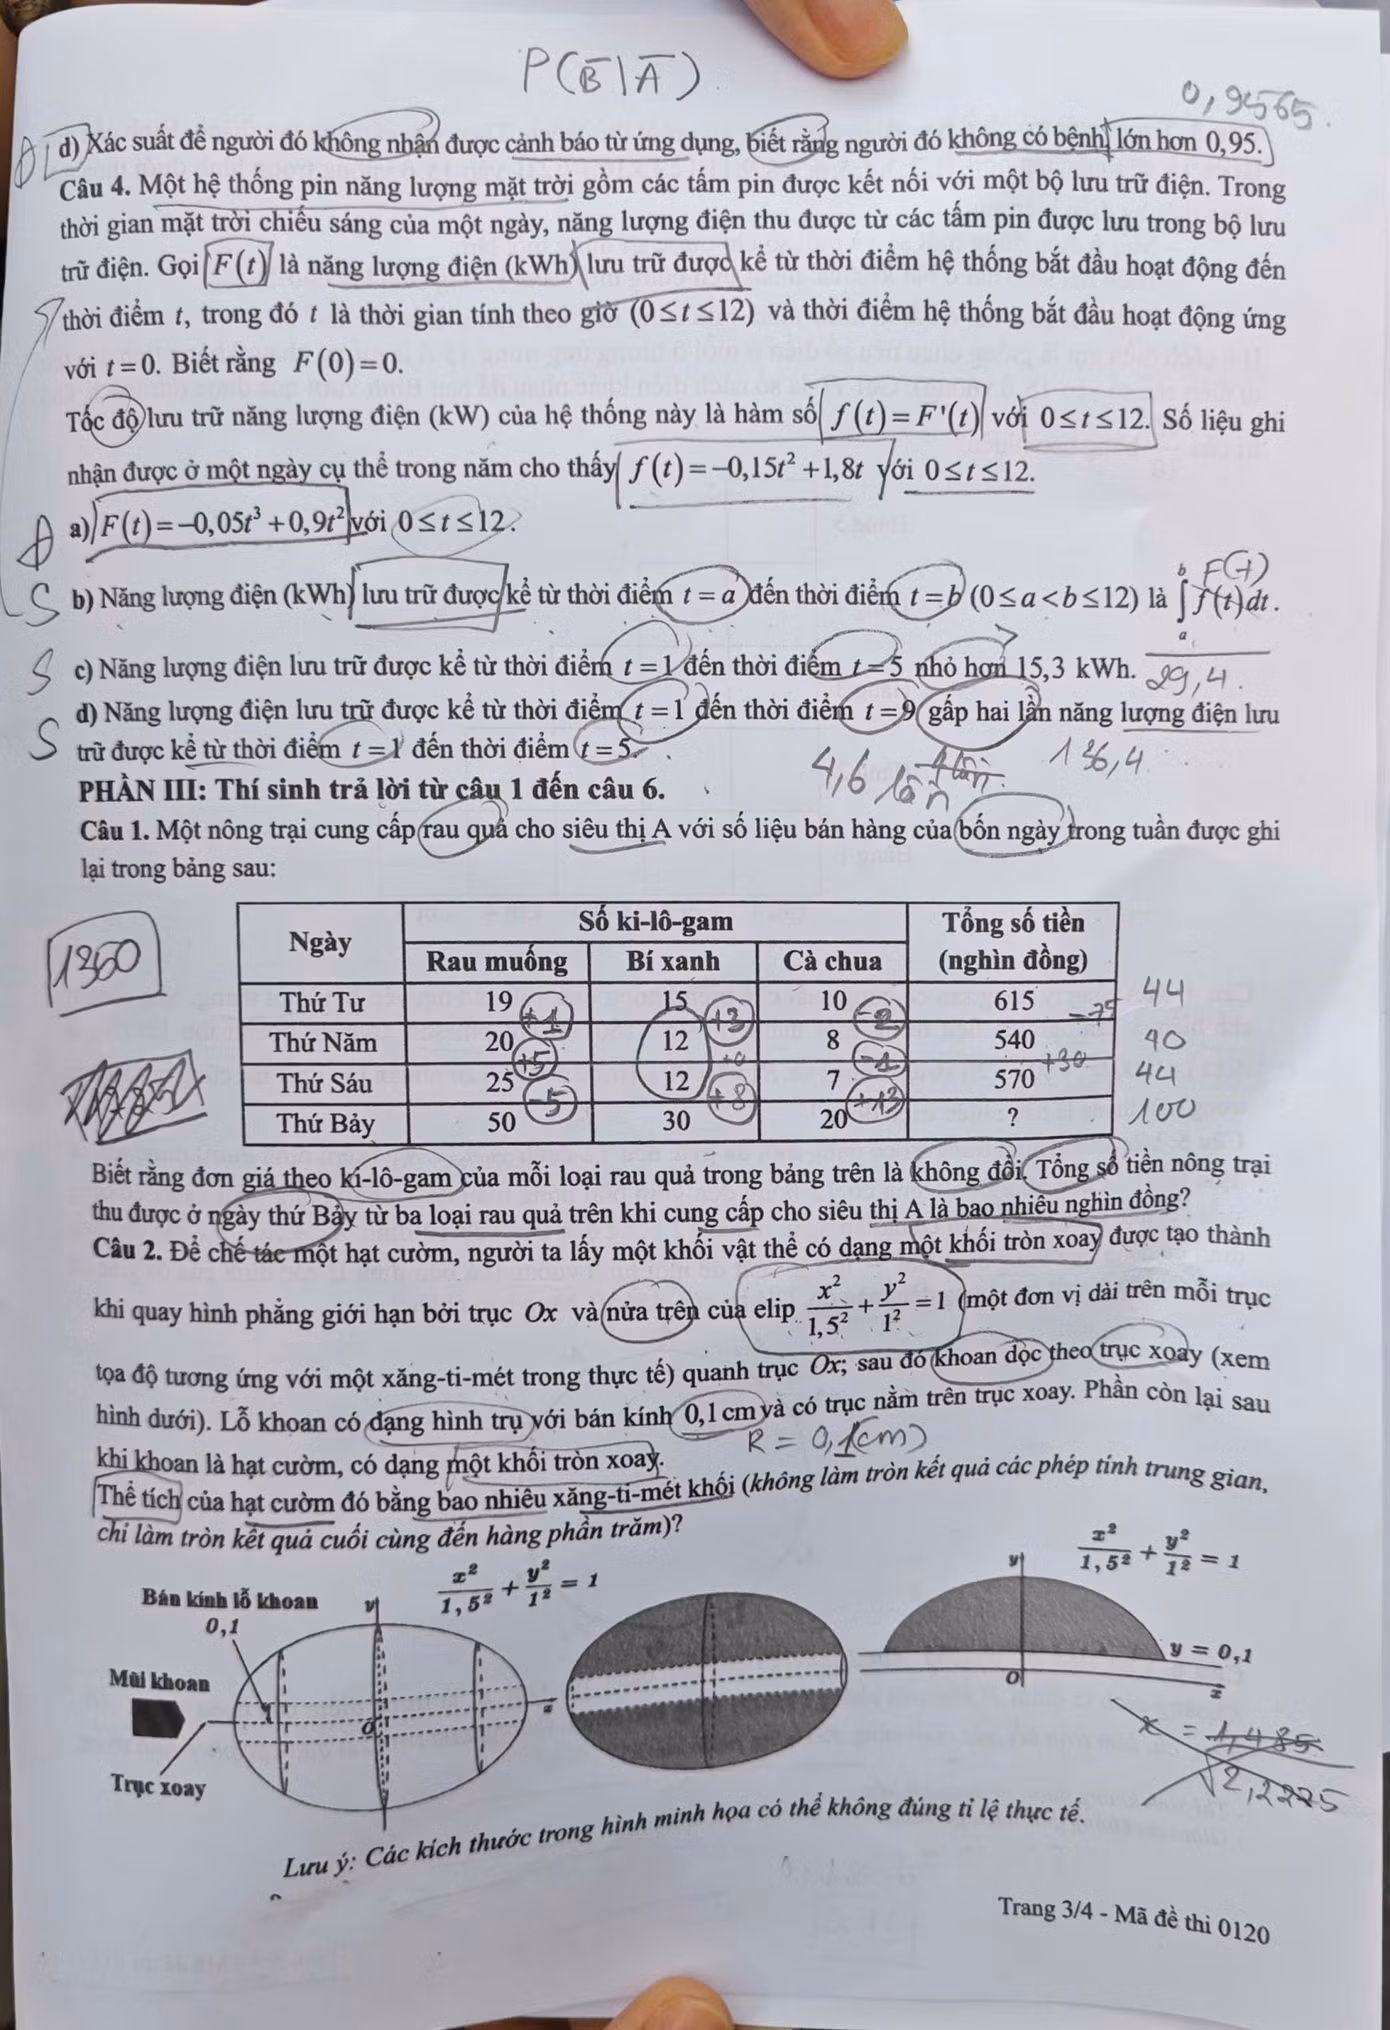 P(B̅|A̅)
0,9565.
Đ d) Xác suất để người đó không nhận được cảnh báo từ ứng dụng, biết rằng người đó không có bệnh, lớn hơn 0,95.
Câu 4. Một hệ thống pin năng lượng mặt trời gồm các tấm pin được kết nối với một bộ lưu trữ điện. Trong
thời gian mặt trời chiếu sáng của một ngày, năng lượng điện thu được từ các tấm pin được lưu trong bộ lưu
trữ điện. Gọi F(t) là năng lượng điện (kWh) lưu trữ được kể từ thời điểm hệ thống bắt đầu hoạt động đến
thời điểm t, trong đó t là thời gian tính theo giờ (0 ≤ t ≤ 12) và thời điểm hệ thống bắt đầu hoạt động ứng
với t = 0. Biết rằng F(0) = 0.
Tốc độ lưu trữ năng lượng điện (kW) của hệ thống này là hàm số f(t) = F'(t) với 0 ≤ t ≤ 12. Số liệu ghi
nhận được ở một ngày cụ thể trong năm cho thấy f(t) = −0,15t² + 1,8t với 0 ≤ t ≤ 12.
Đ a) F(t) = −0,05t³ + 0,9t² với 0 ≤ t ≤ 12.
F(t)
S b) Năng lượng điện (kWh) lưu trữ được kể từ thời điểm t = a đến thời điểm t = b (0 ≤ a < b ≤ 12) là ∫ₐᵇ f(t)dt.
S c) Năng lượng điện lưu trữ được kể từ thời điểm t = 1 đến thời điểm t = 5 nhỏ hơn 15,3 kWh. 29,4.
S d) Năng lượng điện lưu trữ được kể từ thời điểm t = 1 đến thời điểm t = 9 gấp hai lần năng lượng điện lưu
trữ được kể từ thời điểm t = 1 đến thời điểm t = 5.
4,6 lần 136,4.
PHẦN III: Thí sinh trả lời từ câu 1 đến câu 6.
Câu 1. Một nông trại cung cấp rau quả cho siêu thị A với số liệu bán hàng của bốn ngày trong tuần được ghi
lại trong bảng sau:
1350
Ngày Số ki-lô-gam Tổng số tiền (nghìn đồng)
Rau muống Bí xanh Cà chua
Thứ Tư 19 15 10 615 44
+1 +3 -2 -75
Thứ Năm 20 12 8 540 40
+5 +0 -1 +30
Thứ Sáu 25 12 7 570 44
-5 +8 +13
Thứ Bảy 50 30 20 ? 100
Biết rằng đơn giá theo ki-lô-gam của mỗi loại rau quả trong bảng trên là không đổi. Tổng số tiền nông trại
thu được ở ngày thứ Bảy từ ba loại rau quả trên khi cung cấp cho siêu thị A là bao nhiêu nghìn đồng?
Câu 2. Để chế tác một hạt cườm, người ta lấy một khối vật thể có dạng một khối tròn xoay được tạo thành
khi quay hình phẳng giới hạn bởi trục Ox và nửa trên của elip x²/1,5² + y²/1² = 1 (một đơn vị dài trên mỗi trục
tọa độ tương ứng với một xăng-ti-mét trong thực tế) quanh trục Ox; sau đó khoan dọc theo trục xoay (xem
hình dưới). Lỗ khoan có dạng hình trụ với bán kính 0,1 cm và có trục nằm trên trục xoay. Phần còn lại sau
khi khoan là hạt cườm, có dạng một khối tròn xoay.
R = 0,1(cm)
Thể tích của hạt cườm đó bằng bao nhiêu xăng-ti-mét khối (không làm tròn kết quả các phép tính trung gian,
chỉ làm tròn kết quả cuối cùng đến hàng phần trăm)?
x²/1,5² + y²/1² = 1
x²/1,5² + y²/1² = 1
Bán kính lỗ khoan
0,1
Mũi khoan
Trục xoay
y
O
x
y
y = 0,1
O
x
x = 1,485
√2,2275
Lưu ý: Các kích thước trong hình minh họa có thể không đúng tỉ lệ thực tế.
Trang 3/4 - Mã đề thi 0120